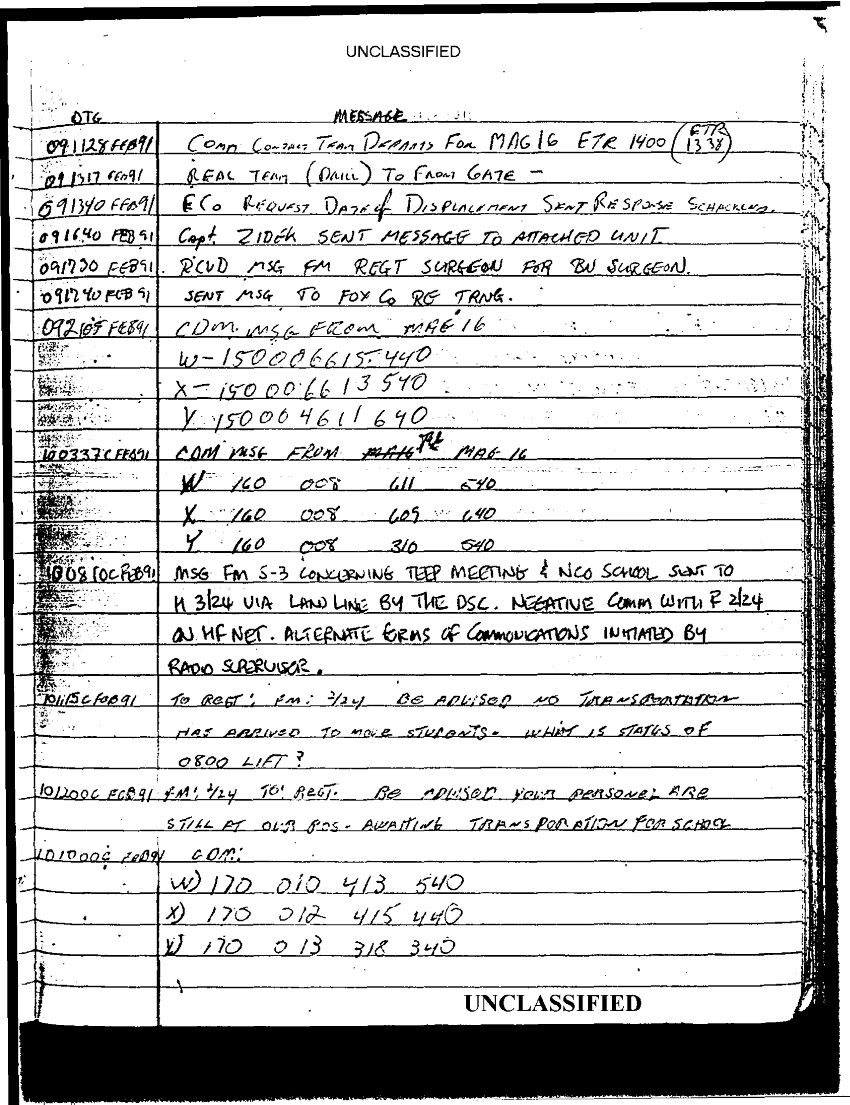 UNCLASSIFIED
DTG MESSAGE
091128FEB91 COMM CONTACT TEAM DEPARTS FOR MAG16 ETR 1400 (ETR 1338)
091317FEB91 REAL TEAM (DRILL) TO FRONT GATE -
091340FEB91 ECO REQUEST DATE of DISPLACEMENT SENT RESPONSE
091640 FEB91 Capt. ZIDEK SENT MESSAGE TO ATTACHED UNIT
091730 FEB91 RCVD MSG FM REGT SURGEON FOR BN SURGEON.
091740 FEB91 SENT MSG TO FOX Co RE TRNG.
092105FEB91 CDM MSG FROM MAG 16
W-150006615440
X-150006613540
Y 150004611640
100337CFEB91 CDM MSG FROM MAG 16
W 160 008 611 540
X 160 008 609 640
Y 160 008 310 540
100810CFEB91 MSG FM S-3 CONCERNING TEEP MEETING & NCO SCHOOL SENT TO
H 3/24 VIA LAND LINE BY THE DSC. NEGATIVE COMM WITH F 2/24
ON HF NET. ALTERNATE FORMS OF COMMUNICATIONS INITIATED BY
RADIO SUPERVISOR.
101115CFEB91 TO REGT: FM: 2/24 BE ADVISED NO TRANSPORTATION
HAS ARRIVED TO MOVE STUDENTS. WHAT IS STATUS OF
0800 LIFT?
101200C FEB91 FM: 2/24 TO: REGT. BE ADVISED YOUR PERSONEL ARE
STILL AT OUR POS. AWAITING TRANSPORATION FOR SCHOOL
FEB91 CDM:
W) 170 010 413 540
X) 170 012 415 440
Y) 170 013 318 340
UNCLASSIFIED